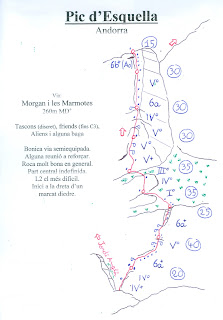 Pic d'Esquella
Andorra
Via:
Morgan i les Marmotes
260m MD⁻
Tascons (discret), friends (fins C3),
Aliens i alguna baga
Bonica via semiequipada.
Alguna reunió a reforçar.
Roca molt bona en general.
Part central indefinida.
L2 el més difícil.
Inici a la dreta d'un
marcat diedre.
15
6Bº (Ao)
30
Vº
6a
30
IVº
Vº
30
V+
III
35
Iº
35
IVº
25
6aº
Vº
40
6aº
IVº
20
IVº